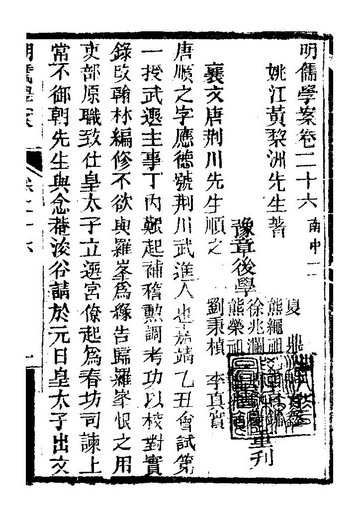 明儒學案卷二十六 南中二
姚江黃黎洲先生著
豫章後學
夏鼎
熊繩祖
徐兆瀾
熊榮祖
劉秉楨
李真實
重刊
襄文唐荆川先生順之
唐順之字應德號荆川武進人也嘉靖乙丑會試第
一授武選主事丁內艱起補稽勲調考功以校對實
錄改翰林編修不欲與羅峯爲緣告歸羅峯恨之用
吏部原職致仕皇太子立選宮僚起爲春坊司諫上
常不御朝先生與念菴浚谷請於元日皇太子出文